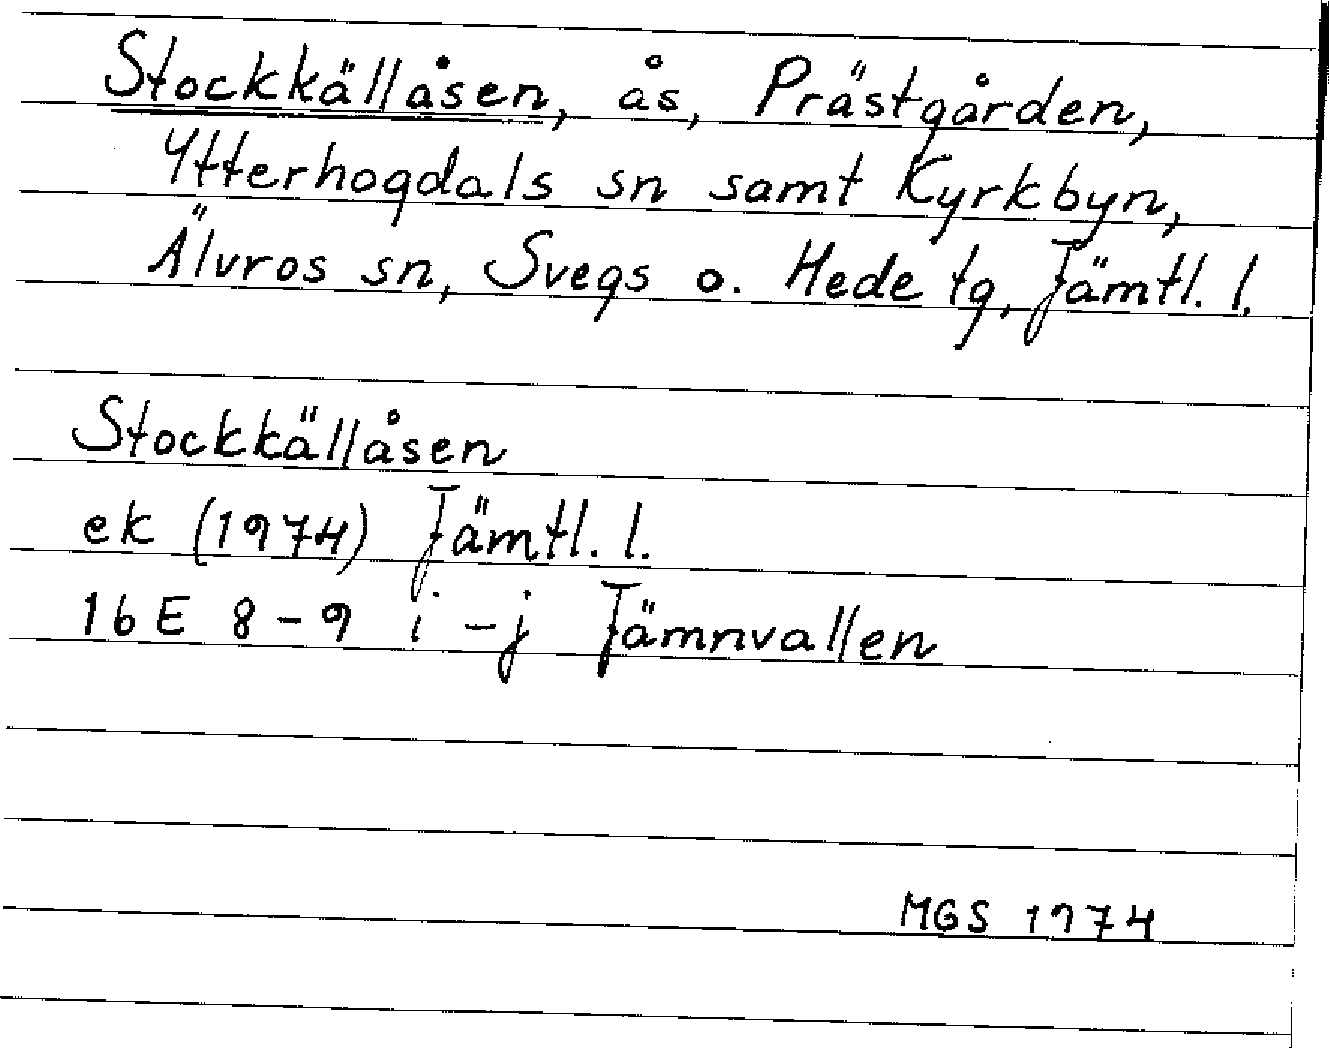 Stockkällåsen, ås, Prästgården,
Ytterhogdals sn samt Kyrkbyn,
Älvros sn, Svegs o. Hede tg, Jämtl. l.
Stockkällåsen
ek (1974) Jämtl. l.
16 E 8-9 i-j Jämnvallen
MGS 1974